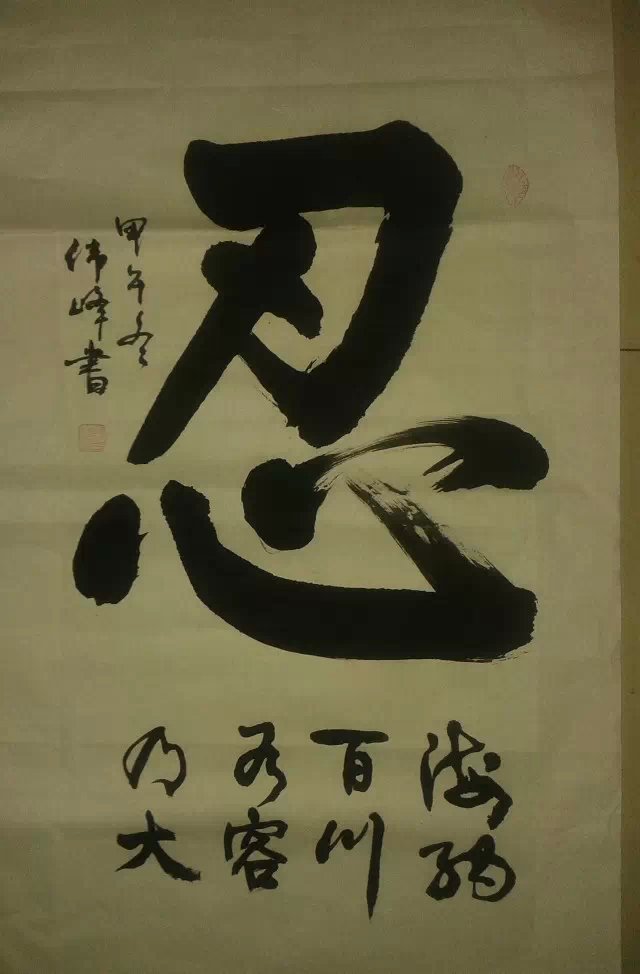 忍
海纳
百川
有容
乃大
甲午冬
伟峰書